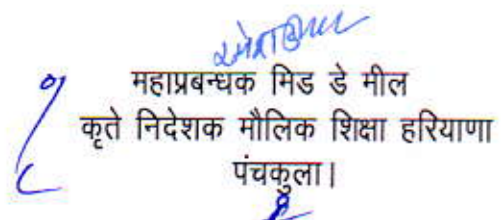 महाप्रबन्धक मिड डे मील
कृते निदेशक मौलिक शिक्षा हरियाणा
पंचकुला।